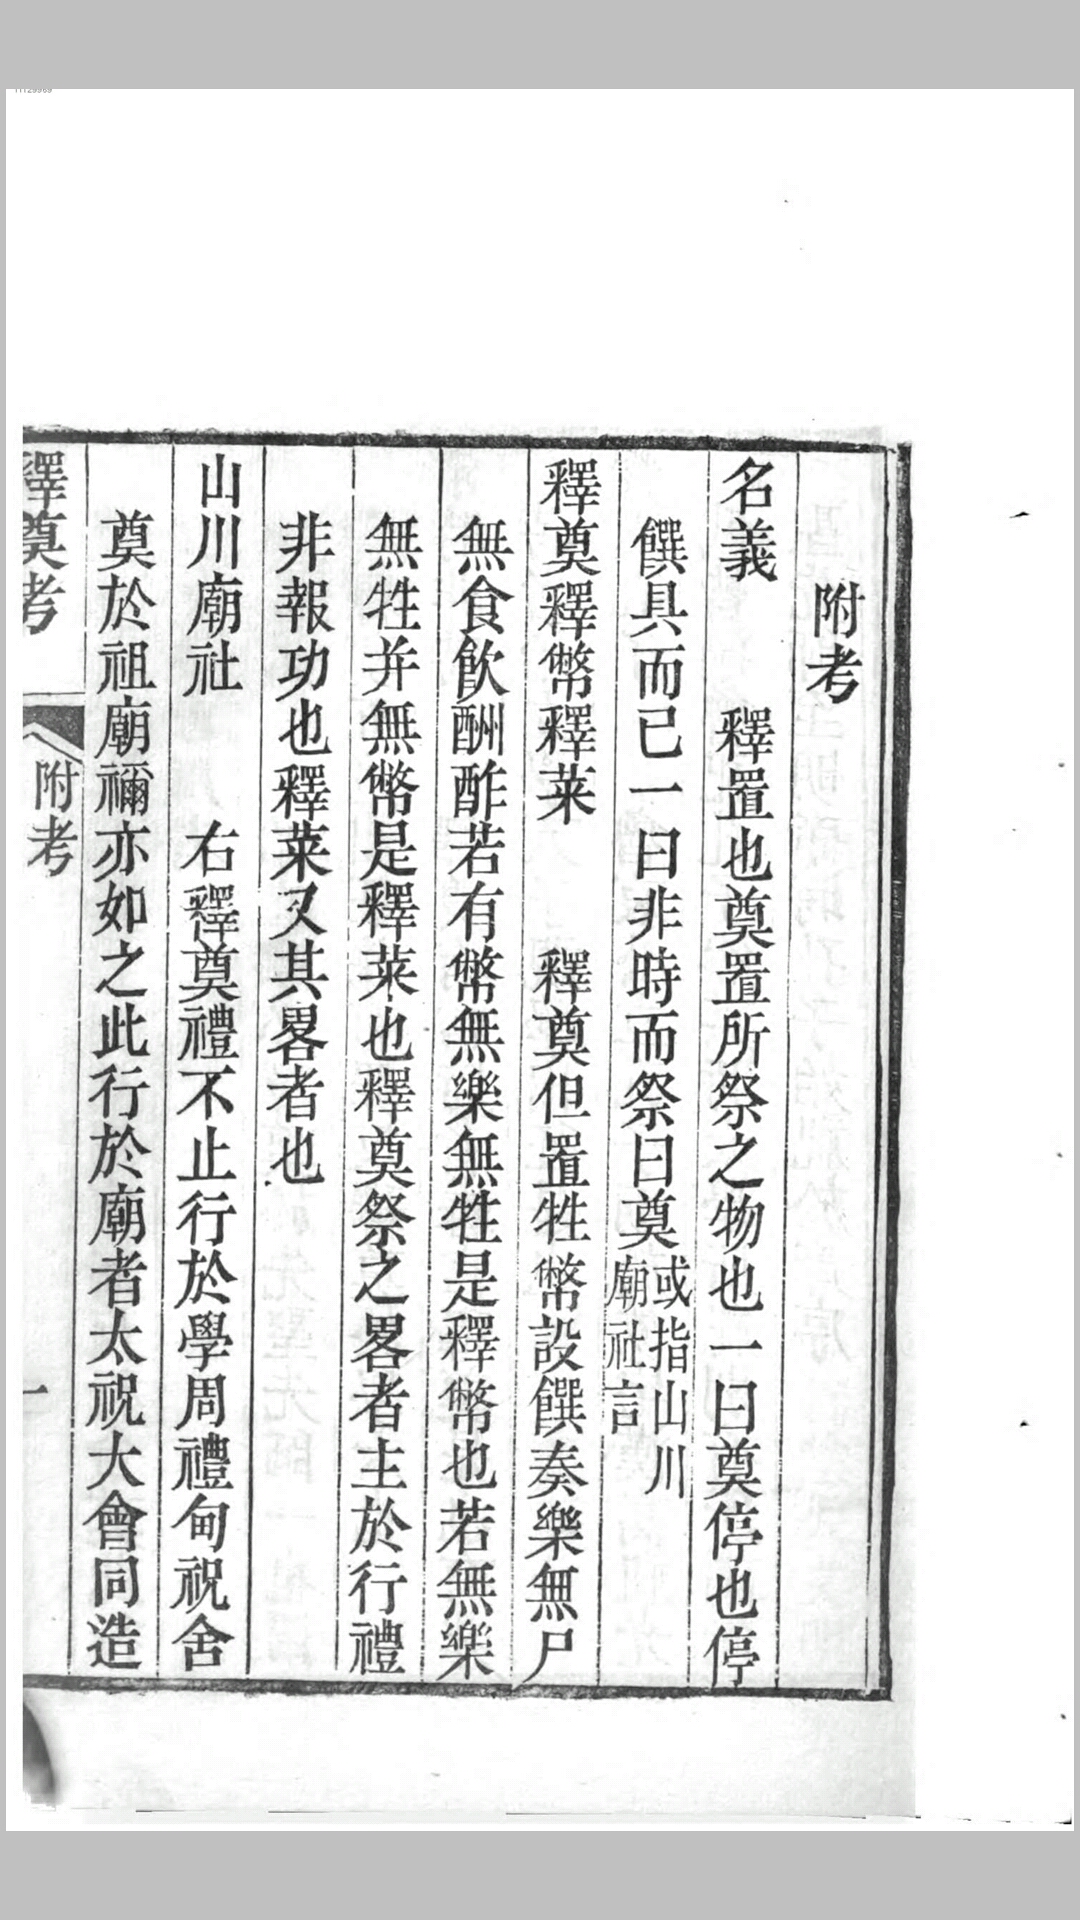 附考
名義　釋置也奠置所祭之物也一曰奠停也停
饌具而已一曰非時而祭曰奠或指山川廟社言
釋奠釋幣釋菜　釋奠但置牲幣設饌奏樂無尸
無食飲酬酢若有幣無樂無牲是釋幣也若無樂
無牲并無幣是釋菜也釋奠祭之畧者主於行禮
非報功也釋菜又其畧者也
山川廟社　右釋奠禮不止行於學周禮甸祝舍
奠於祖廟禰亦如之此行於廟者太祝大會同造
釋奠考　附考　一